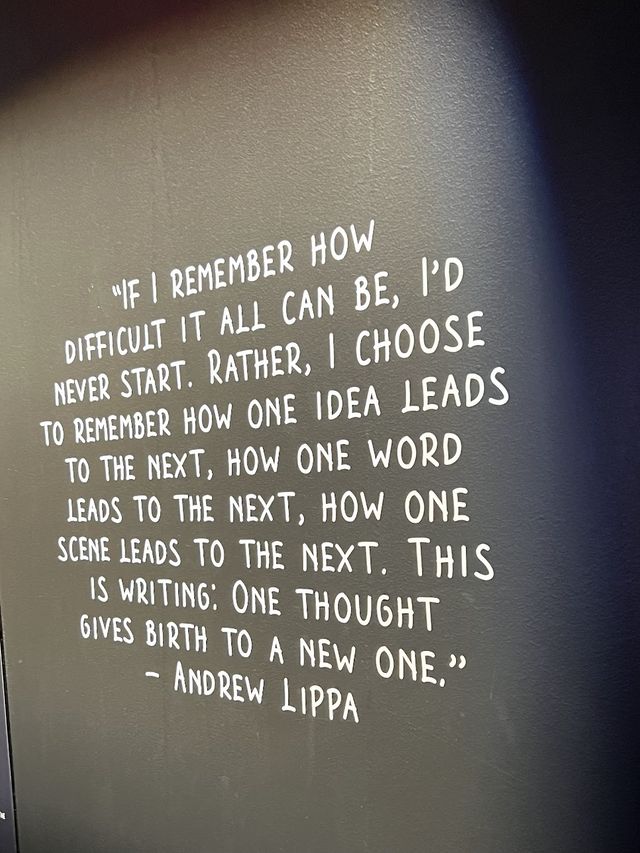 "IF I REMEMBER HOW
DIFFICULT IT ALL CAN BE, I'D
NEVER START. RATHER, I CHOOSE
TO REMEMBER HOW ONE IDEA LEADS
TO THE NEXT, HOW ONE WORD
LEADS TO THE NEXT, HOW ONE
SCENE LEADS TO THE NEXT. THIS
IS WRITING: ONE THOUGHT
GIVES BIRTH TO A NEW ONE."
- ANDREW LIPPA